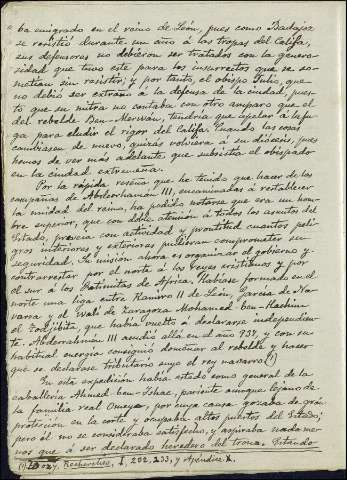 ba emigrado en el reino de León, pues como Badajoz
se resistió durante un año á las tropas del Califa,
sus defensores no debieron ser tratados con la genero-
sidad que tuvo este para los insurrectos que se so-
metian sin resistir; y por tanto, el obispo Julio, que
no debió ser extraño á la defensa de la ciudad, pues-
to que su mitra no contaba con otro amparo que el
del rebelde Ben-Merwán, tendria que apelar á la fu-
ga para eludir el rigor del Califa. Cuando las cosas
cambiasen de nuevo, quizás volviera á su diócesis, pues
hemos de ver más adelante que subsistia el obispado
en la ciudad extremeña.
Por la rápida reseña que he tenido que hacer de las
campañas de Abderrahmán III, encaminadas á restablecer
la unidad del reino, ha podido notarse que era un hom-
bre superior, que con doble atención á todos los asuntos del
Estado, proveia con actividad y prontitud cuantos peli-
gros interiores y exteriores pudieran comprometer su
seguridad. Su misión ahora es organizar el gobierno y
contrarrestar por el norte á los reyes cristianos y por
el sur á los Fatimitas de Africa. Habiase formado en el
norte una liga entre Ramiro II de León, Garcia de Na-
varra y el Wali de Zaragoza Mohamed ben-Hachim
el Todjibita, que habia vuelto á declararse independien-
te. Abderrahmán III acudió allá en el año 937, y con su
habitual energia consiguió domeñar al rebelde y hacer
que se declarase tributario suyo el rey navarro (1)
En esta expedición habia estado como general de la
caballeria Ahmed ben-Ishac, pariente aunque lejano de
la familia real Omeya, por cuya causa gozaba de gran
protección en la corte y ocupaba altos puestos del Estado;
pero él no se consideraba satisfecho, y aspiraba nada me-
nos que á ser declarado heredero del trono. Estando
(1) Dozy, Recherches, I, 232, 233, y Apéndice X.